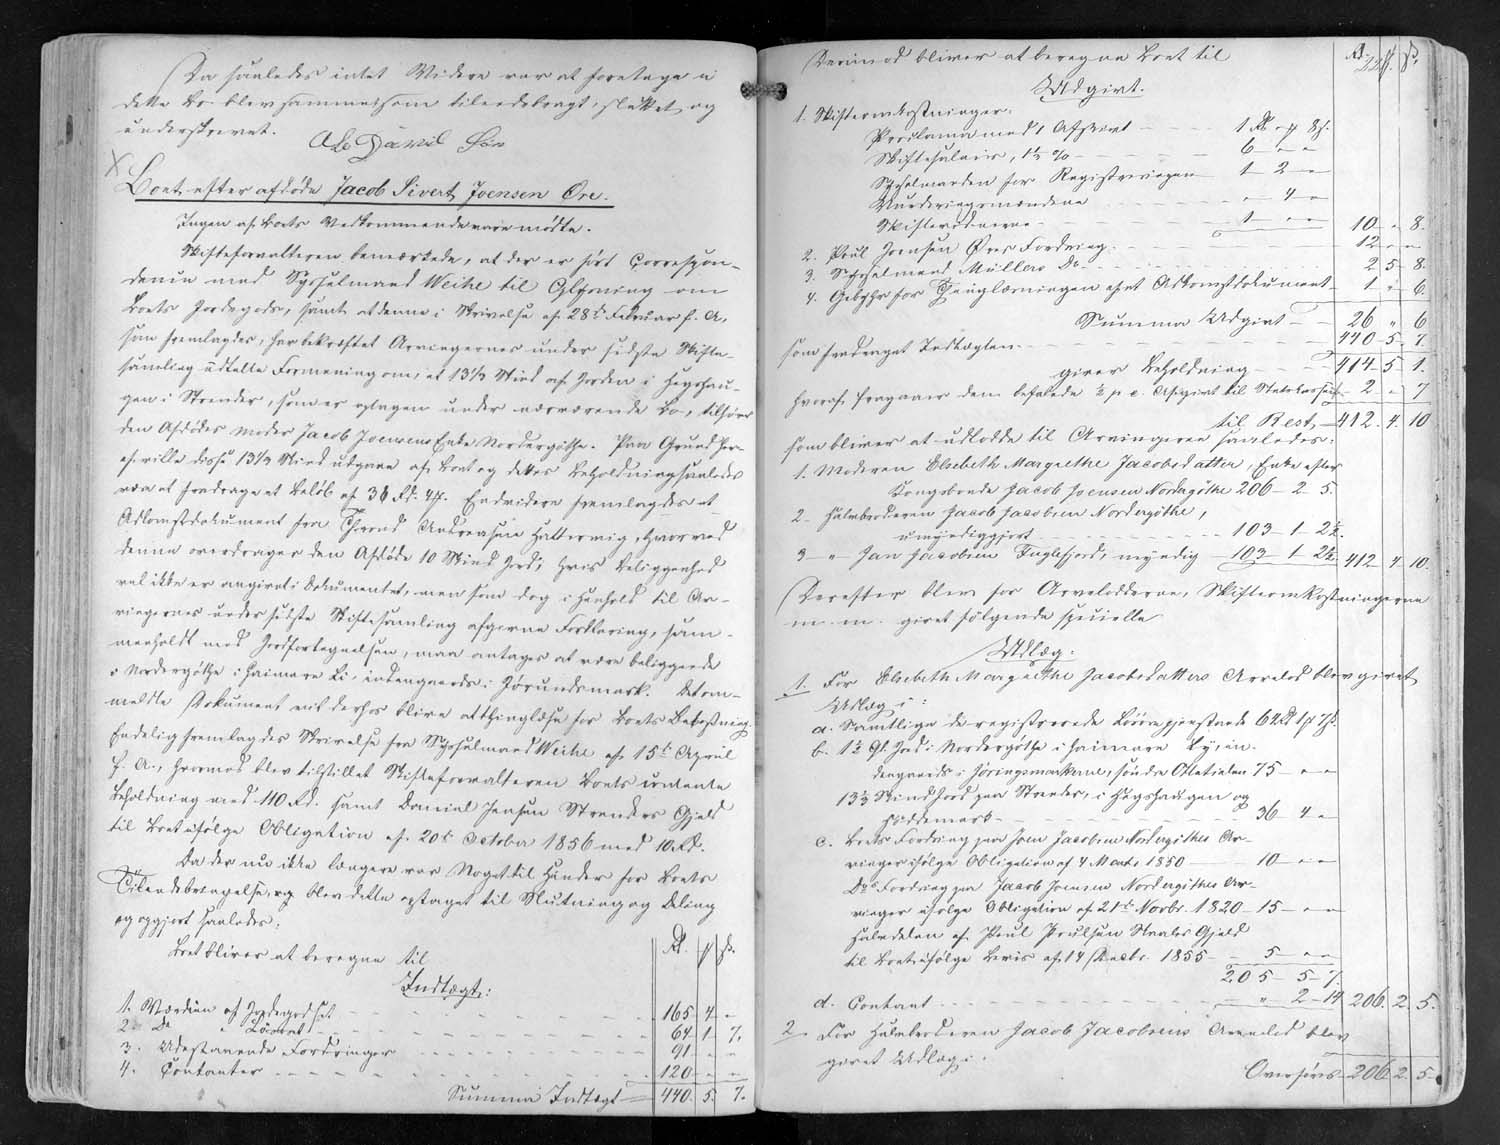 Da saaledes intet Videre var at foretage i
dette Bo blev samme som tilendebragt, sluttet og
underskrevet.
Boet efter afdøde Jacob Sivert Joensen Øre.
Ingen af Boets Vedkommende vare mødte.
Skifteforvalteren bemærkede, at der er ført Correspon-
dence med Sysselmand Weihe til Oplysning om
Boets Jordegods, samt at denne i Skrivelse af 28de Februar f. A.,
som fremlagdes, har bekræftet Arvingernes under sidste Skifte-
samling udtalte Formening om, at 13⅓ Skind af Jorden i Høgshau-
gen i Strender, som er optagen under nærværende Bo, tilhører
den Afdødes Moder Jacob Joensens Enke Nordergøthe. Paa Grund her-
af ville disse 13⅓ Skind udgaae af Boet og dettes Beholdning saaledes
være at fradrage et Beløb af 36 Rd. 4 . Endvidere fremlagdes et
Adkomstdokument fra Thrond Andreasen Hattervig, hvorved
denne overdrager den Afdøde 10 Skind Jord, hvis Beliggenhed
vel ikke er angivet i Dokumentet, men som dog i Henhold til Ar-
vingernes under sidste Skiftesamling afgivne Forklaring, sam-
menholdt med Jordfortegnelsen, maa antages at være beliggende
i Nordergøthe i Haimare By, indengaards i Jørundsmark. Det om-
meldte Dokument vil derhos blive at thinglæse for Boets Bekostning.
Endelig fremlagdes Skrivelse fra Sysselmand Weihe af 15de April
f. A., hvormed blev tilstillet Skifteforvalteren Boets contante
Beholdning med 110 Rd. samt Daniel Jensen Strenders Gjeld
til Boet ifølge Obligation af 20de October 1856 med 10 Rd.
Da der nu ikke længere var Noget til Hinder for Boets
Tilendebringelse, blev dette optaget til Slutning og Deling
og opgjort saaledes:
Boet bliver at beregne til
Indtægt:
1. Værdien af Jordegodset 165 4 "
2. Do " Løsøret 64 1 7.
3. Udestaaende Fordringer 91 " "
4. Contanter 120 " "
Summa Indtægt 440. 5. 7.
Derimod bliver at beregne Boet til
Udgivt.
1. Skifteomkostninger:
Proclama med Afskrivt 1 Rd " 8 .
Skiftesalair, 1½ % 6 " "
Sysselmanden for Registreringen 1 2 "
Vurderingsmændene " 4 "
Skiftevidnerne 1 " " 10 " 8.
2. Poul Joensen Øres Fordring 12 " "
3. Sysselmand Müllers Do 2 5 8.
4. Gebyhr for Thinglæsningen af et Adkomstdokument 1 " 6.
Summa Udgivt 26 " 6
som fradraget Indtægten 440 5 7.
giver Beholdning 414 5 1.
hvoraf fragaaer den befalede ½ p. c. Afgivt til Statskassen 2 " 7
til Rest 412. 4. 10
som bliver at udlodde til Arvingerne saaledes:
1. Moderen Elsebeth Margrethe Jacobsdatter, Enke efter
Kongsbonde Jacob Joensen Nordergøthe 206 2 5.
2. Halvbroderen Jacob Jacobsen Nordergøthe,
umyndiggjort 103 1 2½.
3 " Jan Jacobsen Fuglefjord, myndig 103 1 2½ 412 4 10.
Derefter blev for Arvelodderne, Skifteomkostningerne
m. m. givet følgende specielle
Udlæg:
1. For Elsebeth Margrethe Jacobsdatters Arvelod blev givet
Udlæg i:
a. Samtlige de registrerede Løsøregjenstande 62 Rd 1 7 .
b. 1½ Gl. Jord i Nordergøthe i Haimare By, in-
dengaards i Jøringsmarkerne, søndre 75 " "
13⅓ Skind Jord paa Strender, i Høgshaugen og
36 4 "
c. Boets Fordring paa Joen Jacobsen Nordergøthes Ar-
vinger ifølge Obligation af 4 Marts 1850 10 " "
Dos Fordring paa Jacob Joensen Nordergøthes Ar-
vinger ifølge Obligation af 21de Novbr. 1820 15 " "
Halvdelen af Poul Poulsen Gjeld
til Boet ifølge Bevis af 14 Decbr. 1855 5 " "
205 5 7.
d. Contant " 2 14 206. 2. 5.
2. For Halvbroderen Jacob Jacobsens Arvelod blev
givet Udlæg i:
Overføres 206. 2. 5.